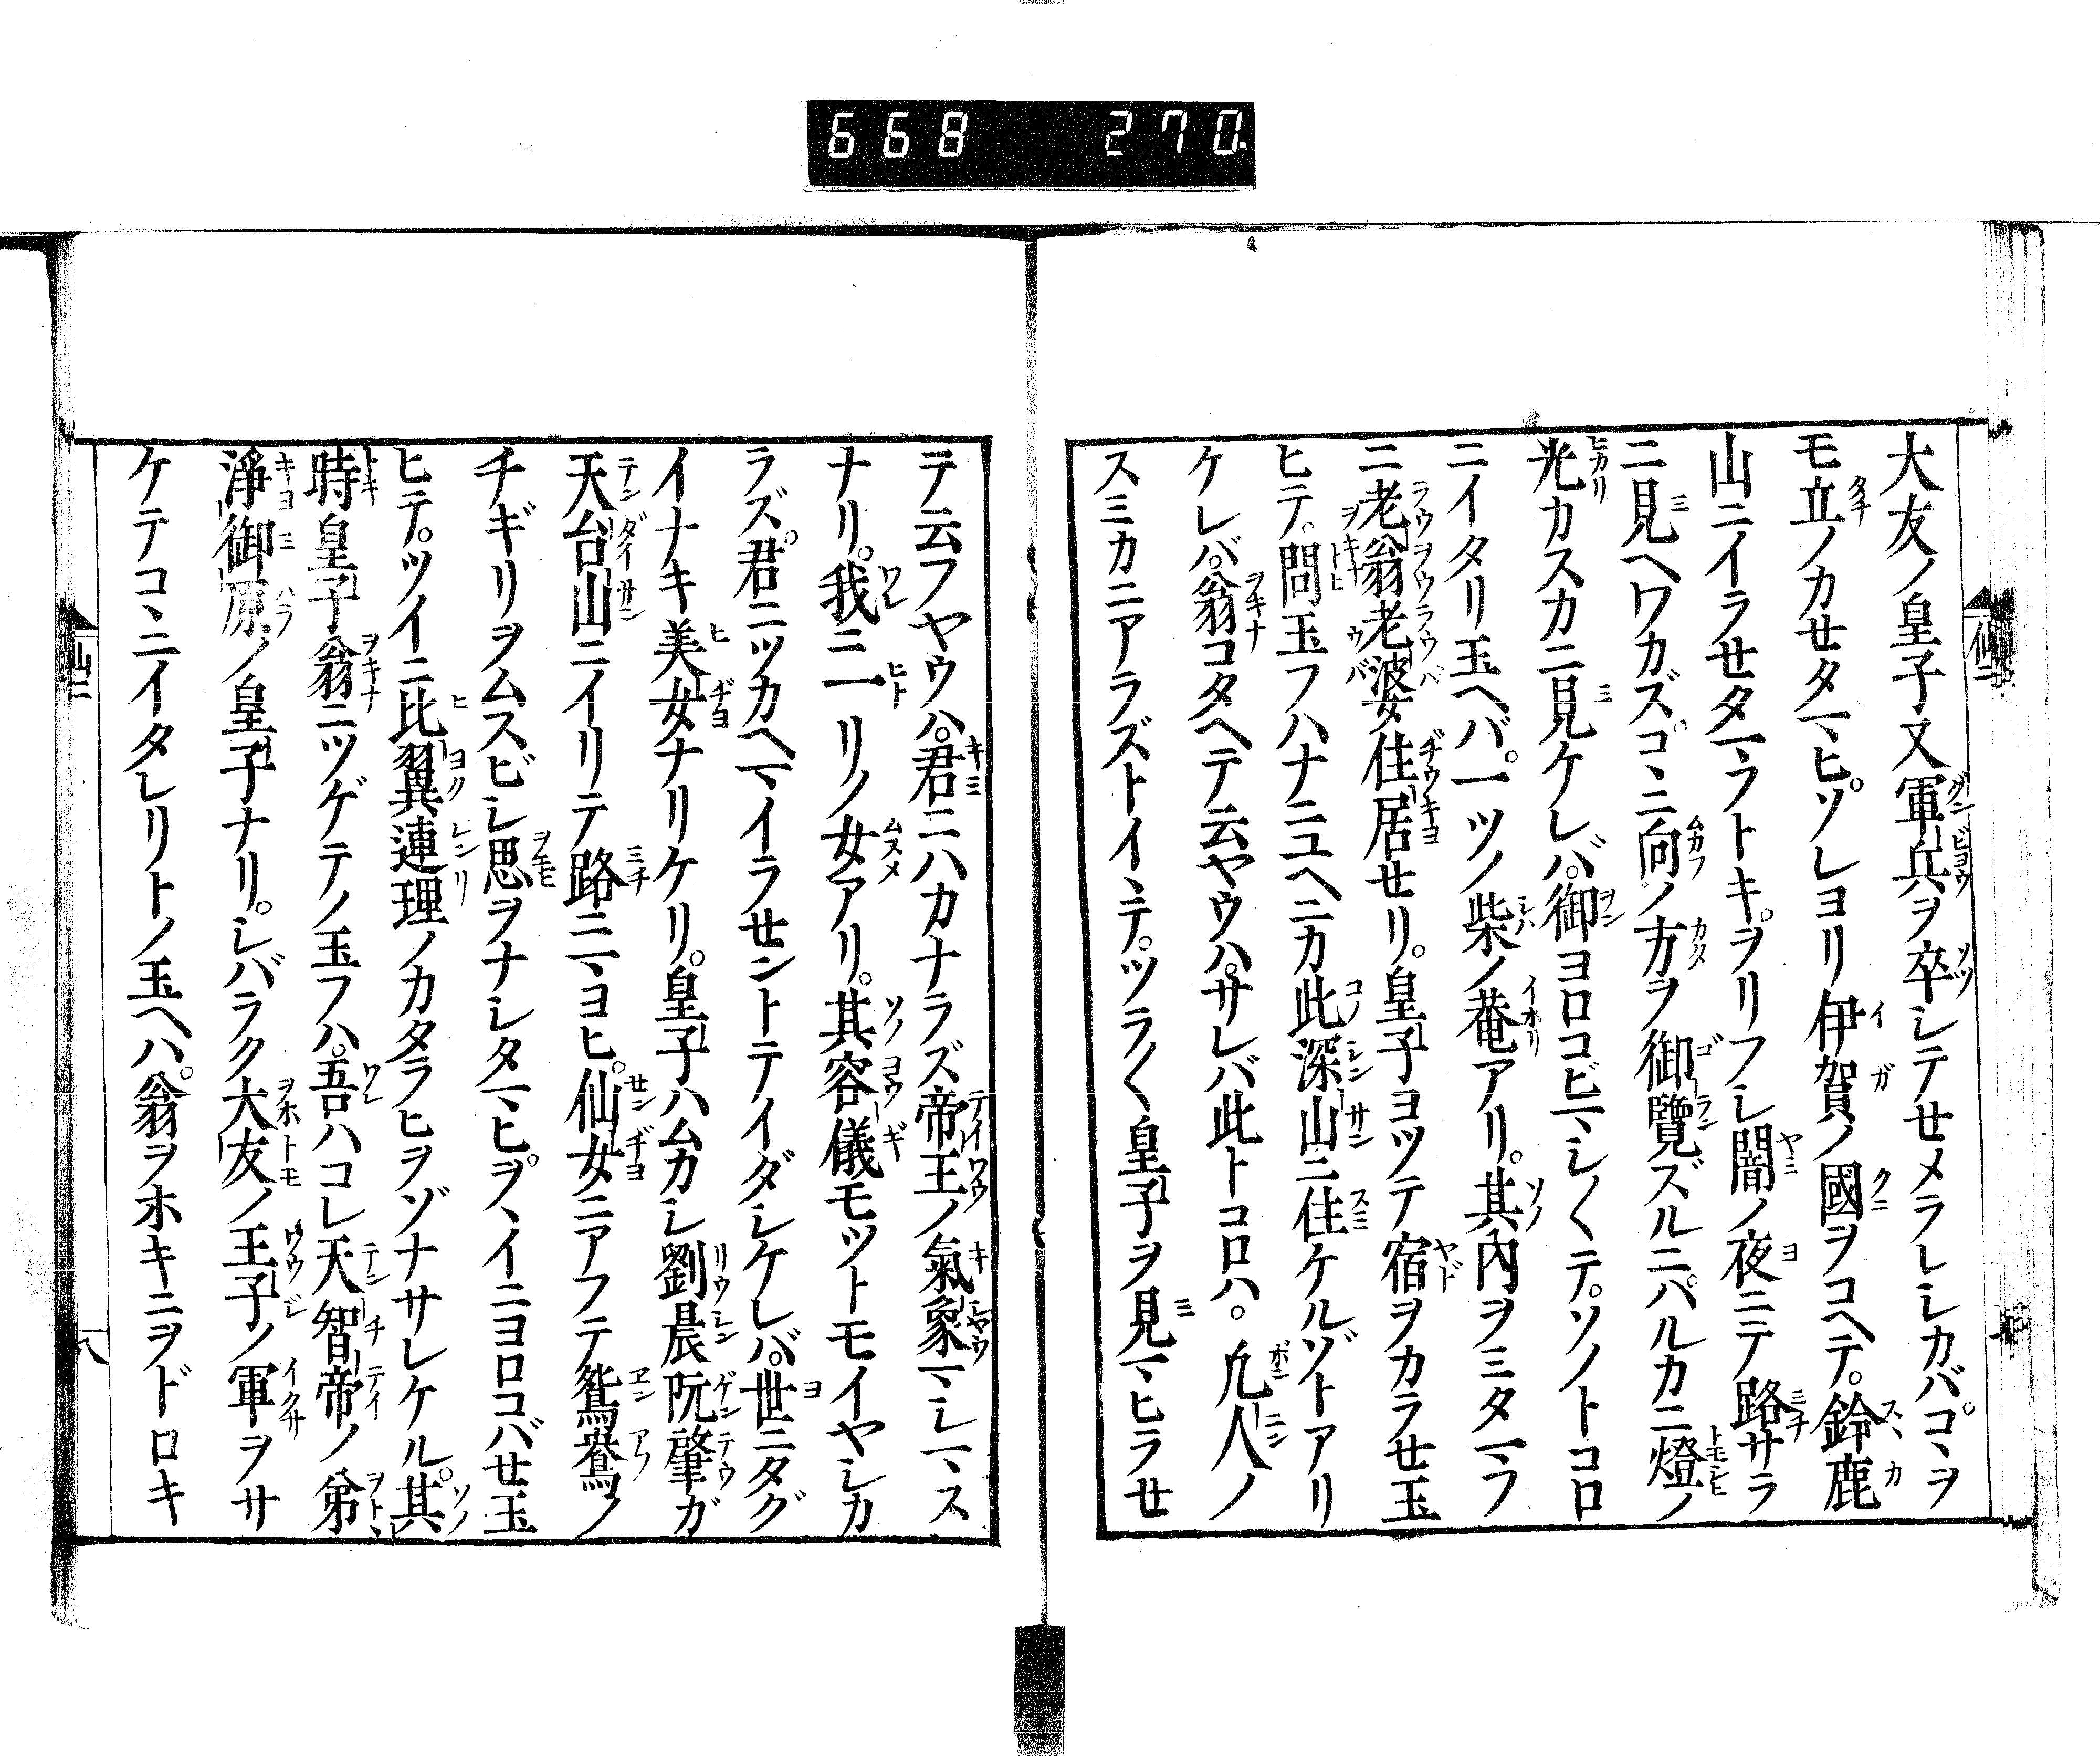 668 270.
大友ノ皇子又軍兵ヲ卒シテせメラレシカバ。コヽヲ
モ立ノカせタマヒ。ソレヨリ伊賀ノ國ヲコヘテ。鈴鹿
山ニイラせタマフトキ。ヲリフシ闇ノ夜ニテ路サラ
ニ見ヘワカズ。コヽニ向ノ方ヲ御覽ズルニ。ハルカニ燈ノ
光カスカニ見ケレバ。御ヨロコビマシ〱テ。ソノトコロ
ニイタリ玉ヘバ。一ツノ柴ノ菴アリ。其内ヲミタマフ
ニ老翁老婆住居せリ。皇子ヨツテ宿ヲカラせ玉
ヒテ。問玉フハナニユヘニカ此深山ニ住ケルゾトアリ
ケレバ。翁コタヘテ云ヤウハ。サレバ此トコロハ。凢人ノ
スミカニアラズトイヽテ。ツラ〱皇子ヲ見マヒラせ
テ云フヤウハ。君ニハカナラズ帝王ノ氣象マシマス
ナリ。我ニ一リノ女アリ。其容儀モツトモイヤシカ
ラズ。君ニツカヘマイラせントテイダシケレバ。世ニタグ
イナキ美女ナリケリ。皇子ハムカシ劉晨阮肇ガ
天台山ニイリテ路ニマヨヒ。仙女ニアフテ鴛鴦ノ
チギリヲムスビシ思ヲナシタマヒ。ヲヽイニヨロコバせ玉
ヒテ。ツイニ比翼連理ノカタラヒヲゾナサレケル。其
時皇子翁ニツゲテノ玉フハ。吾ハコレ天智帝ノ弟
淨御原ノ皇子ナリ。シバラク大友ノ王子ノ軍ヲサ
ケテコヽニイタレリトノ玉ヘハ。翁ヲホキニヲドロキ
八